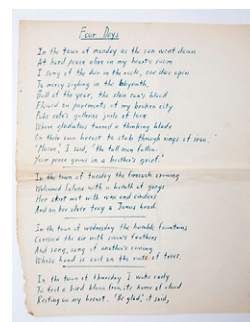 Four Days
In the town of monday as the sun went down
At hard peace alive in my heart's room
I sang of the dove in the
To mercy sighing in the labyrinth.
Full of the year, the slain sun's blood
Flowed on pavements of my broken city
gutterus jails of love
Where gladiators turned a thinking blade
On their own breast to stab through rings of iron.
I said, 'the tall man fallen.
Your peace grows in a brother's grief.'
In the town of tuesday the firesock crowing
Welcomed Salome with a wreath of
Her met with wine and candles
And on her silver tray a James head.
In the town of wednesday the humble fountains
Covered the air with swan's feathers
And song, song of another's coming
Whose head is cast on the roots of trees.
In the town of thursday I woke early
To feel a bird blown from its home of cloud
Resting on my breast. 'Be glad,' it said,